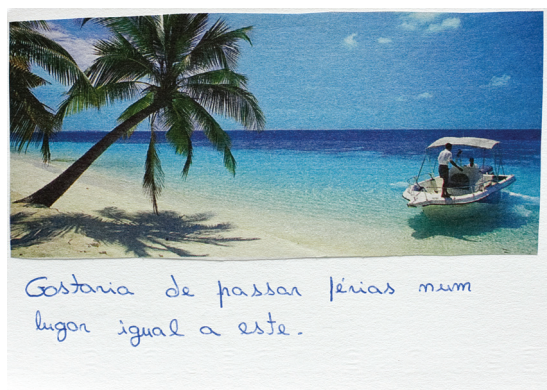 Gostaria de passar férias num
lugar igual a este.